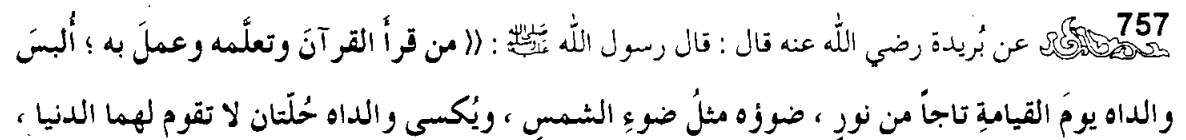 757 عن بُريدة رضي اللّه عنه قال : قال رسول اللّه ﷺ : (( من قرأَ القرآنَ وتعلَّمه وعملَ به ؛ أُلبسَ
والداه يومَ القيامةِ تاجاً من نورٍ ، ضوؤه مثلُ ضوءِ الشمسِ ، ويُكسى والداه حُلّتان لا تقوم لهما الدنيا ،